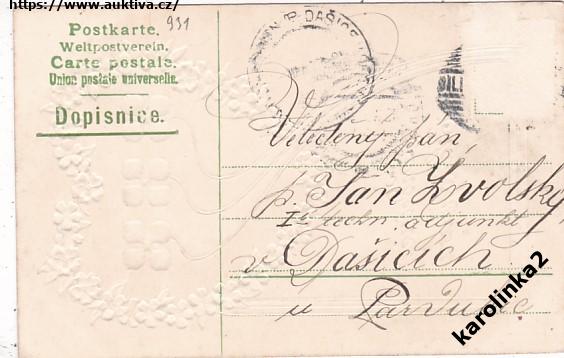 https://www.auktiva.cz/
931
Postkarte.
Weltpostverein.
Carte postale.
Union postale universelle.
Dopisnice.
DAŠICE
BIL
Veletěný pán,
p. Jan Zvolský
techn. adjunkt
v Dašicích
u Pardubic
karolinka2